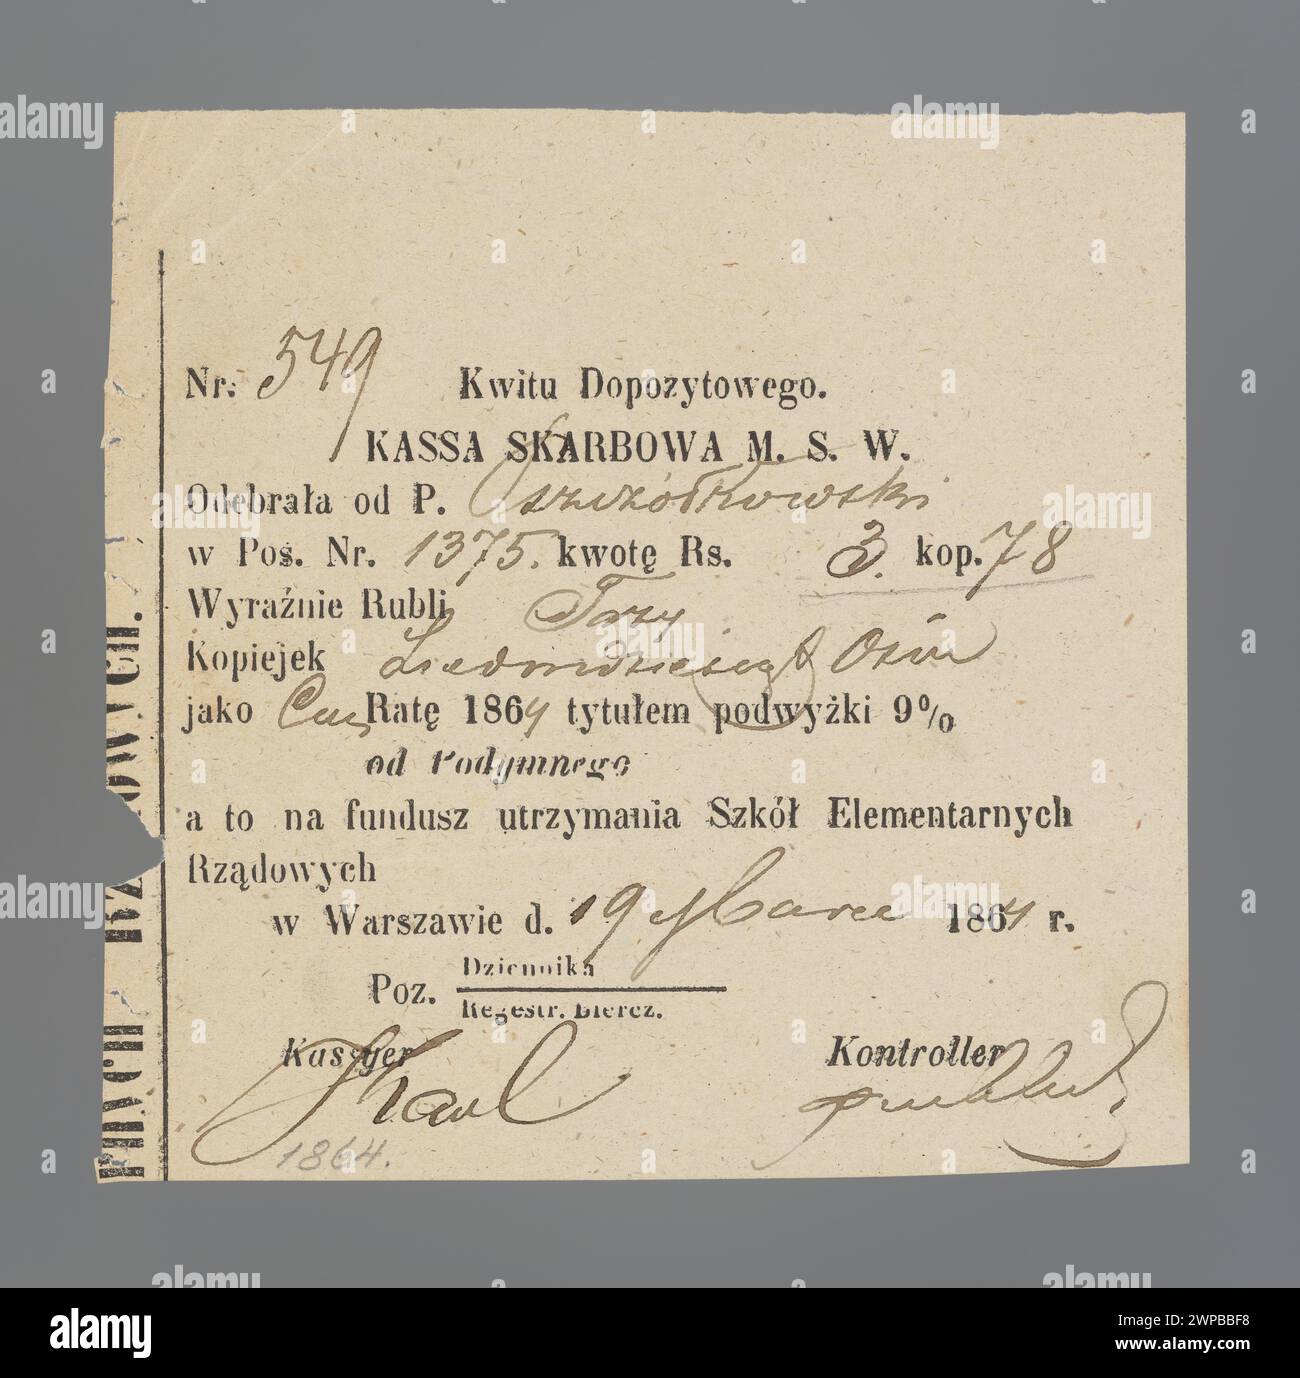 Nr. 549 Kwitu Dopozytowego.
KASSA SKARBOWA M. S. W.
Odebrała od P.
w Pos. Nr. 1375. kwotę Rs. 3. kop. 78
Wyraźnie Rubli Trzy
Kopiejek Siedmdziesiąt Ośm
jako Ratę 1864 tytułem podwyżki 9%
od Podymnego
a to na fundusz utrzymania Szkół Elementarnych
Rządowych
w Warszawie d. 19 Marca 1864 r.
Poz. Dziennika
Regestr. Biercz.
Kassyer Kontroller
1864.
alamy
Image ID: 2WPBBF8
www.alamy.com